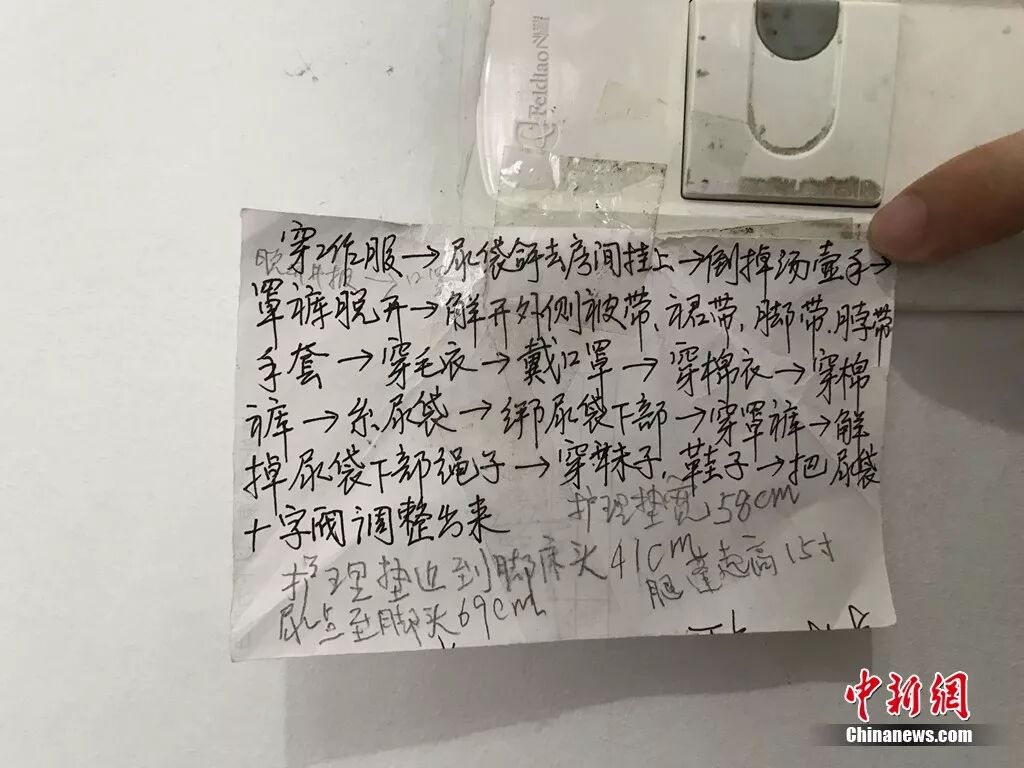 Feidiao
穿工作服→尿袋拿去房间挂上→倒掉汤壶手→
罩裤脱开→解开外侧被带、裙带，脚带，脖带
手套→穿毛衣→戴口罩→穿棉衣→穿棉
裤→系尿袋→绑尿袋下部→穿罩裤→解
掉尿袋下部绳子→穿袜子，鞋子→把尿袋
十字阀调整出来
护理垫宽58cm
护理垫边到脚床头41cm
腿垫起高15寸
尿点至脚头69cm
中新网
Chinanews.com